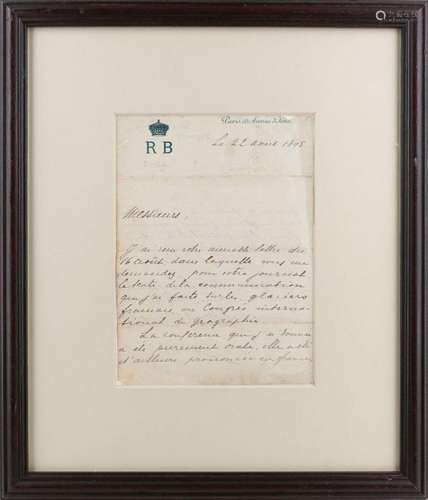 R B
Le 22 août 1895
Messieurs,
J'ai reçu votre aimable lettre du
16 août dans laquelle vous me
demandez pour votre journal
le texte de la communication
que j'ai faite sur les glaciers
français, au Congrès interna-
tional de géographie.
La conférence que j'ai donnée
a été purement orale, elle a été
d'ailleurs prononcée en français